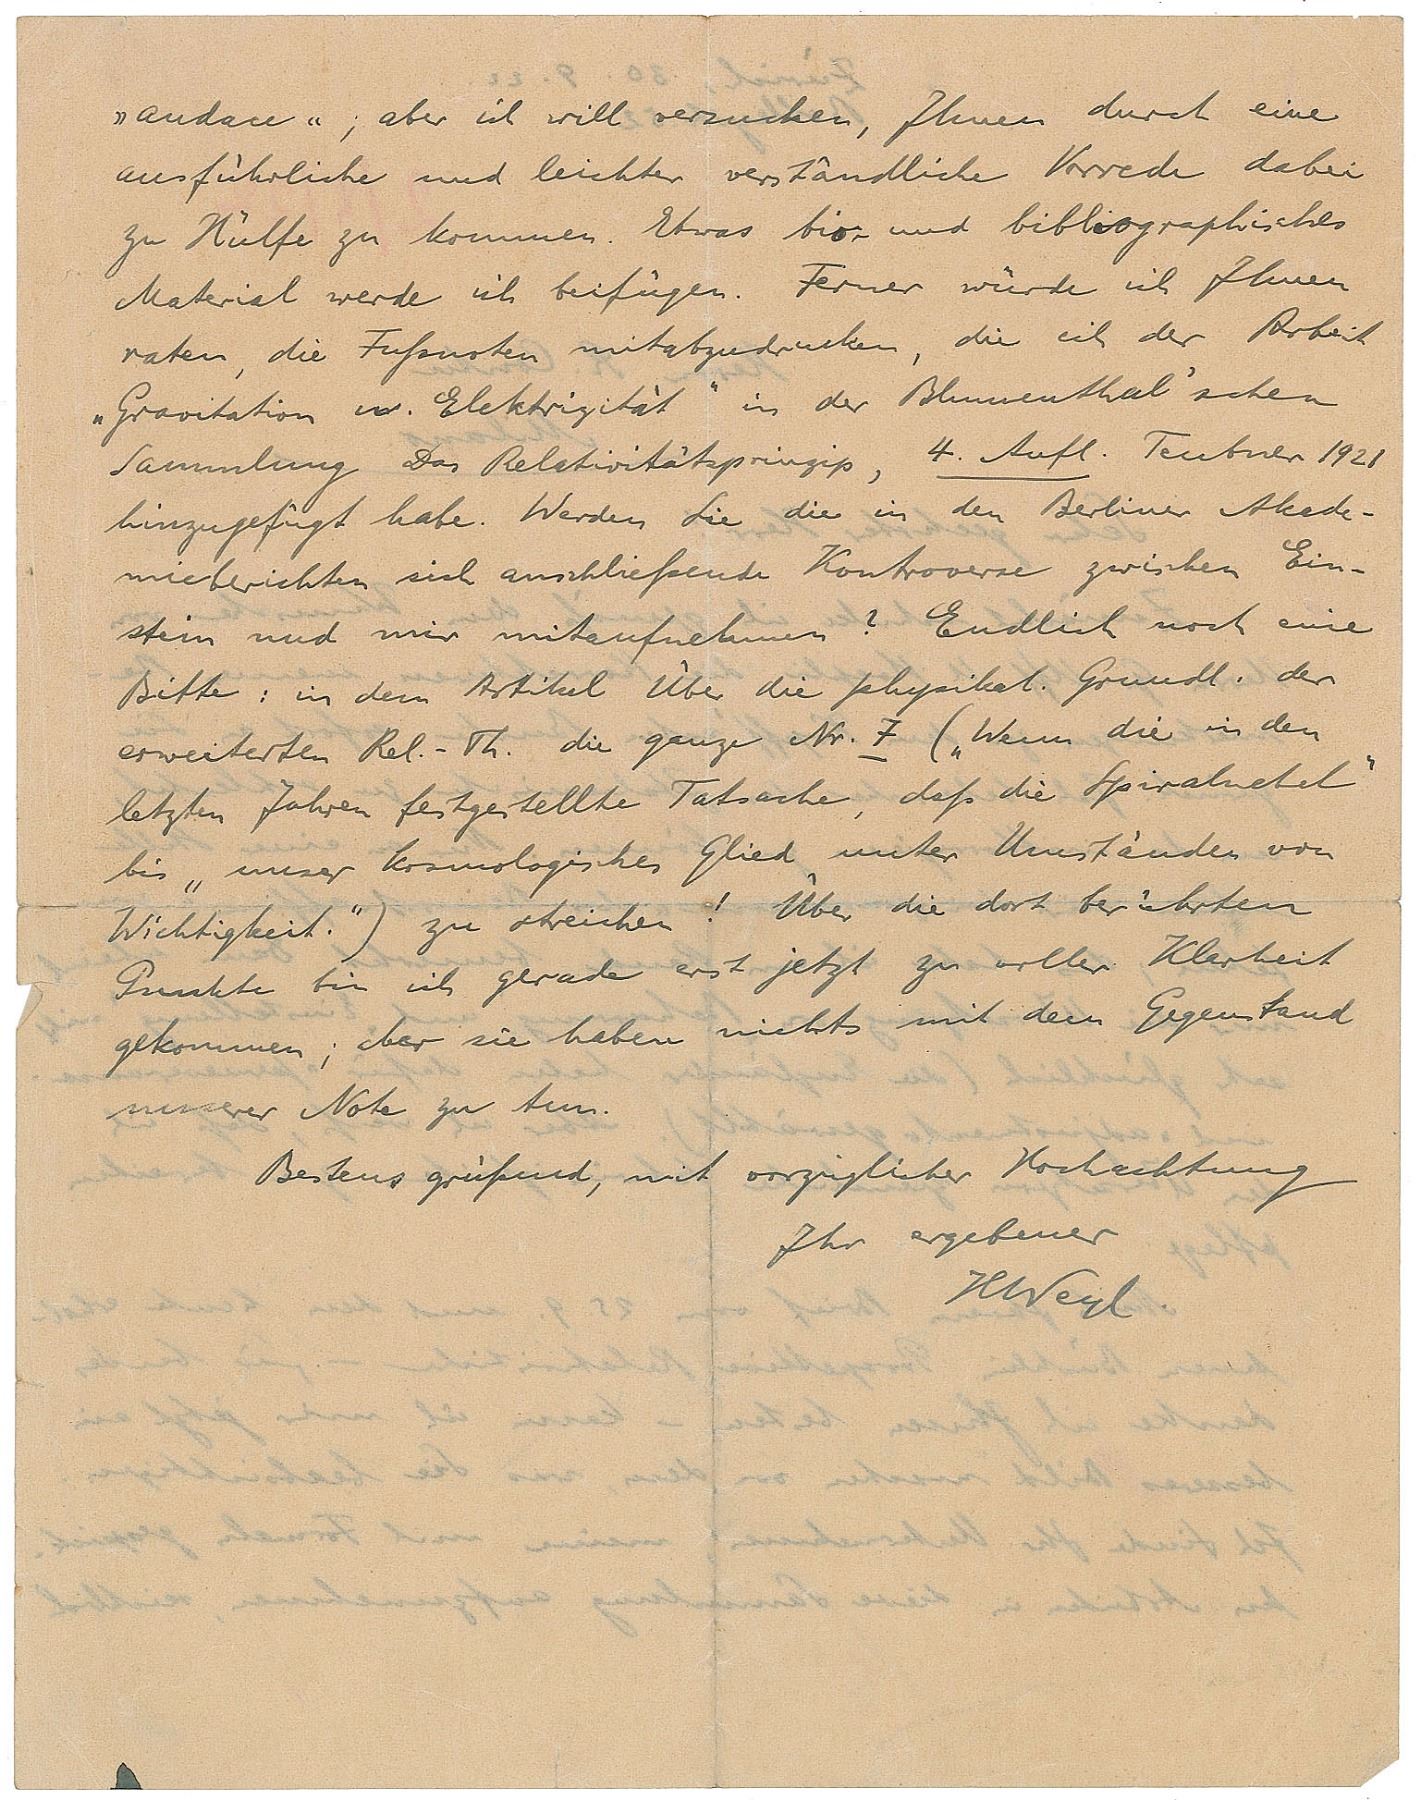 „audace“; aber ich will versuchen, Ihnen durch eine
ausführliche und leichter verständliche Vorrede dabei
zu Hülfe zu kommen. Etwas bio- und bibliographisches
Material werde ich beifügen. Ferner würde ich Ihnen
raten, die Fußnoten mitabzudrucken, die ich der Arbeit
„Gravitation u. Elektrizität“ in der Blumenthal'schen
Sammlung Das Relativitätsprinzip, 4. Aufl. Teubner 1921
hinzugefügt habe. Werden Sie die in den Berliner Akade-
mieberichten sich anschließende Kontroverse zwischen Ein-
stein und mir mitaufnehmen? Endlich noch eine
Bitte: in dem Artikel Über die physikal. Grundl. der
erweiterten Rel.-Th. die ganze Nr. 7 („Wenn die in den
letzten Jahren festgestellte Tatsache, daß die Spiralnebel“
bis „unser kosmologisches Glied unter Umständen von
Wichtigkeit.“) zu streichen! Über die dort berührten
Punkte bin ich gerade erst jetzt zu voller Klarheit
gekommen; aber sie haben nichts mit dem Gegenstand
unserer Note zu tun.
Bestens grüßend, mit vorzüglicher Hochachtung
Ihr ergebener
HWeyl